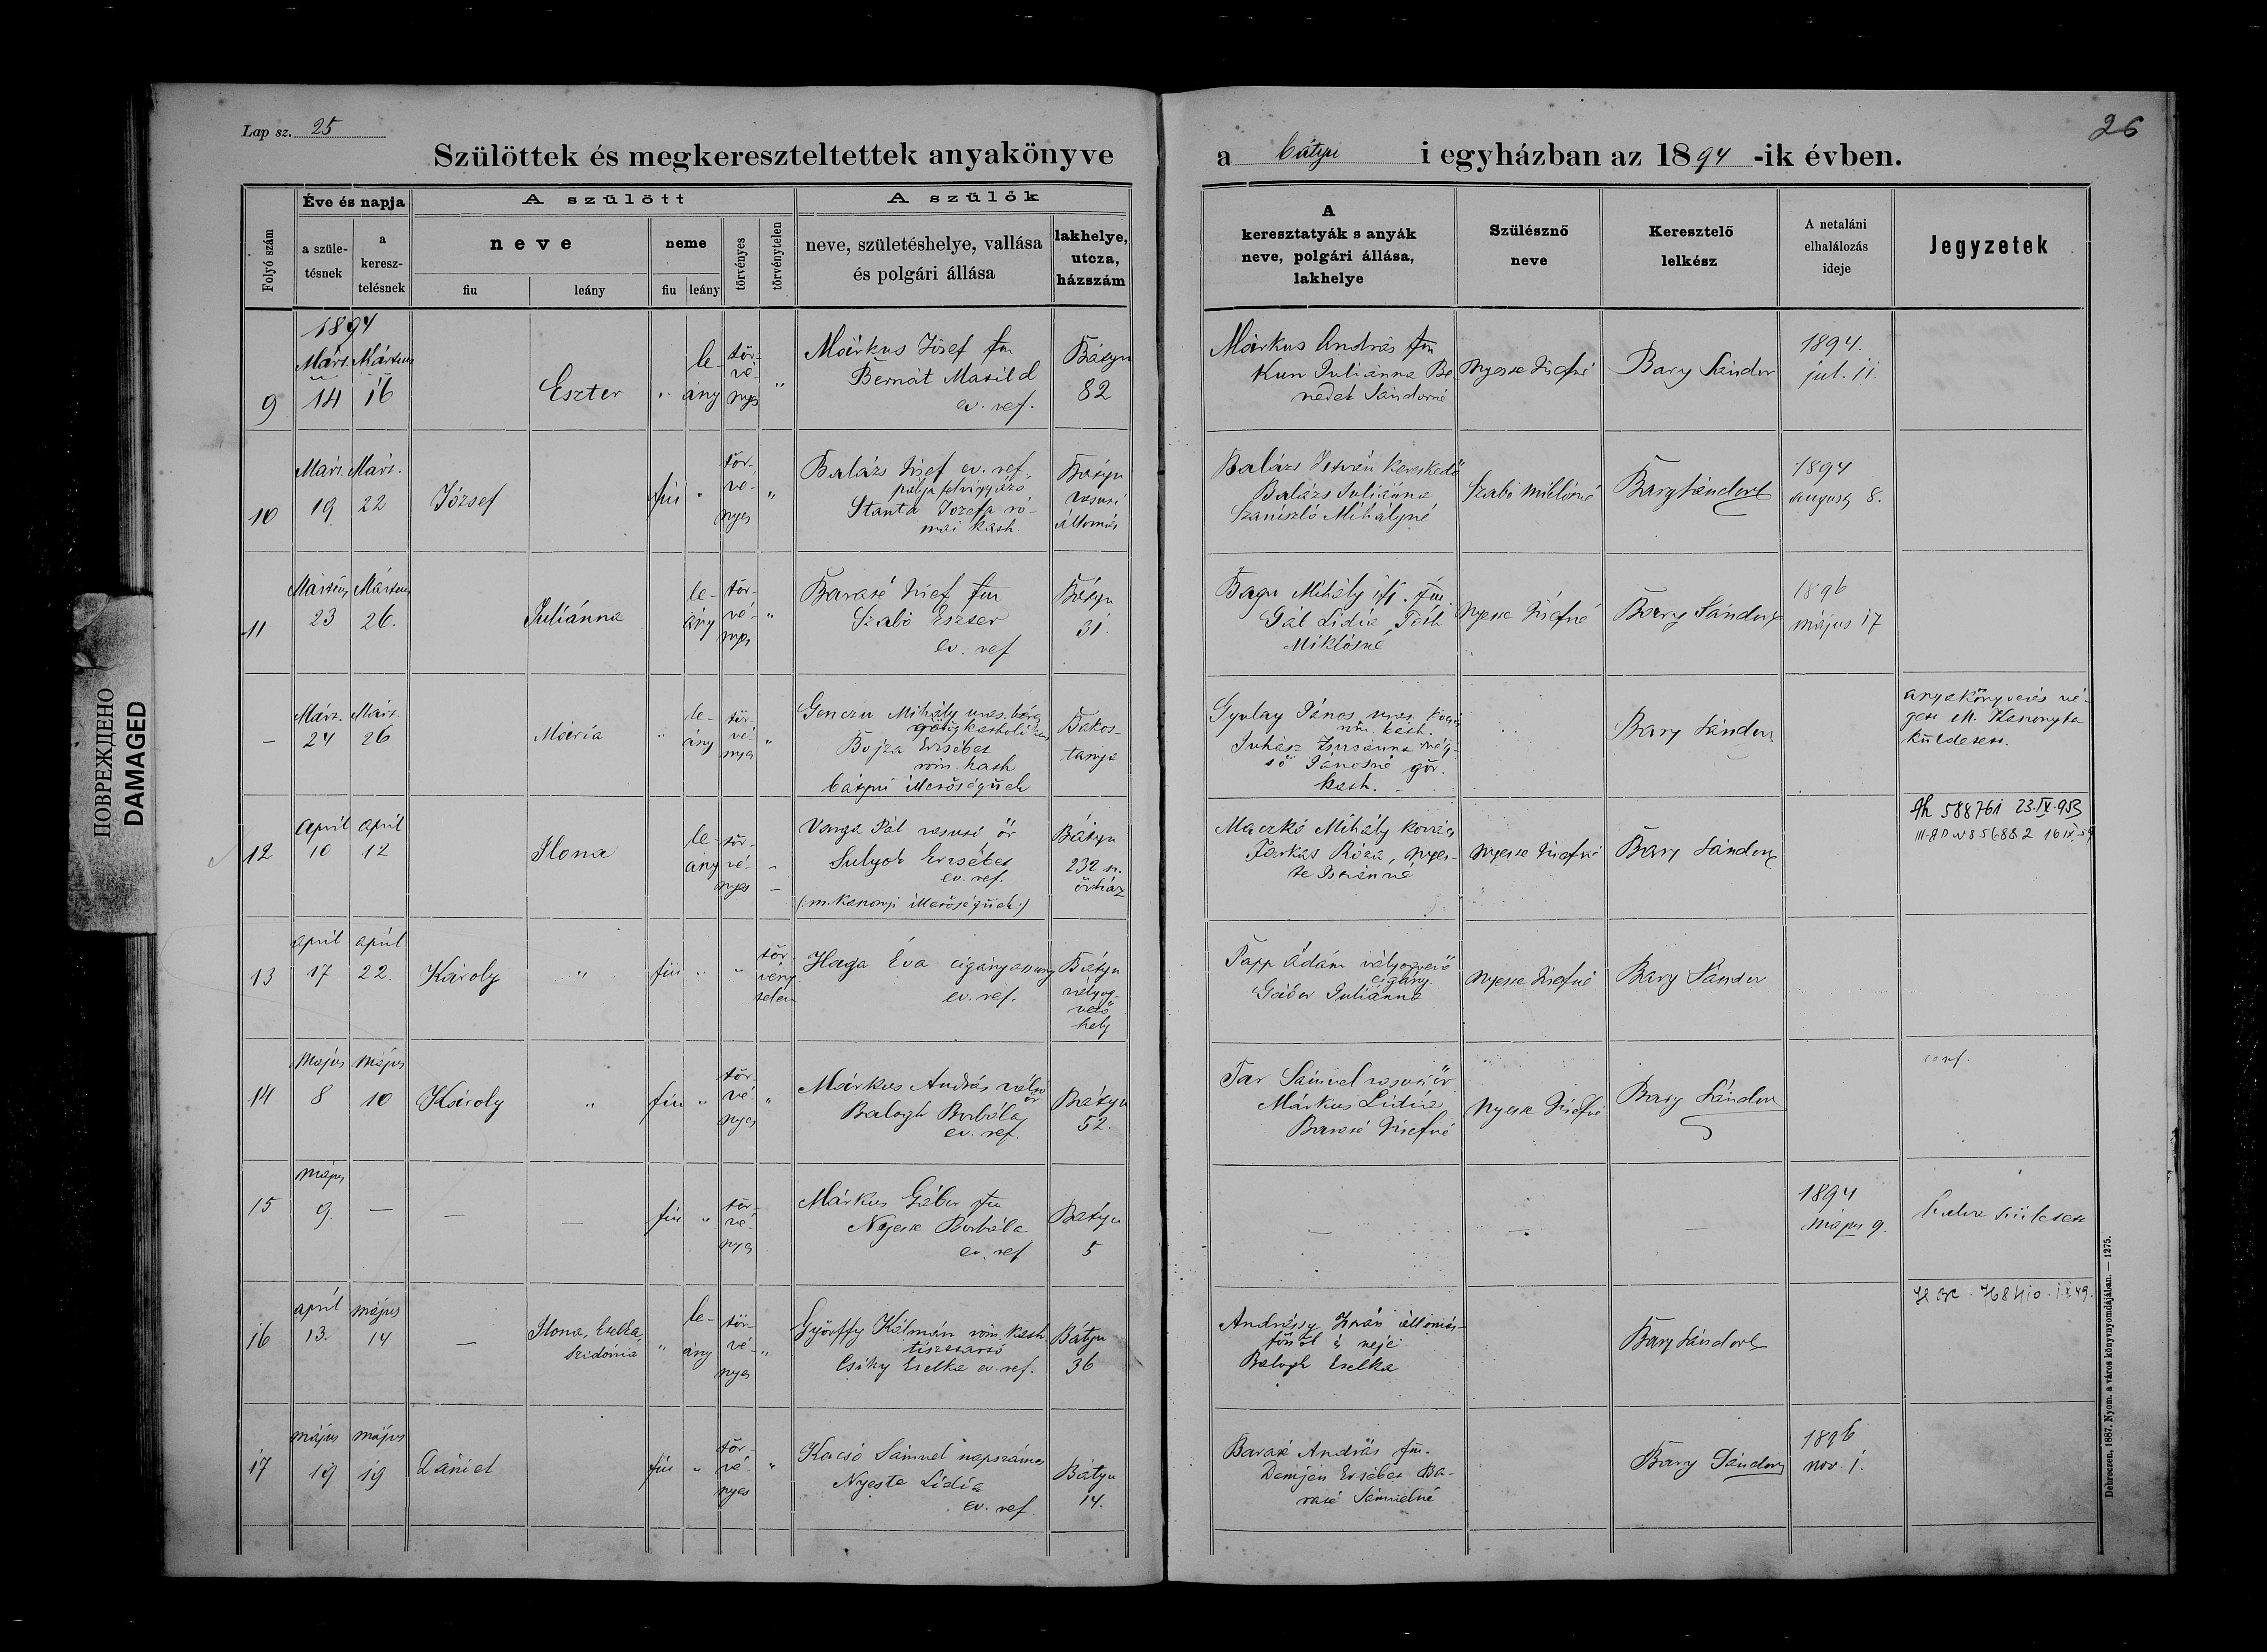 Lap sz. 25
Szülöttek és megkereszteltettek anyakönyve
a bátyui i egyházban az 1894 -ik évben.
26
Folyó szám
Éve és napja
a születésnek
a keresztelésnek
A szülött
neve
fiu
leány
neme
fiu
leány
törvényes
törvénytelen
A szülők
neve, születéshelye, vallása
és polgári állása
lakhelye,
utcza,
házszám
A
keresztatyák s anyák
neve, polgári állása,
lakhelye
Szülésznő
neve
Keresztelő
lelkész
A netaláni
elhalálozás
ideje
Jegyzetek
1894
9
Márt. 14
Mártius 16
Eszter
"
le-
ány
tör-
vé-
nyes
"
Márkus Jósef fm
Bernát Matild
ev. ref.
Bátyu
82
Márkus András fm
Kun Juliánna Be-
nedek Sándorné
Nyeste Jósefné
Bary Sándor
1894.
jul. 11.
10
Márt. 19
Márt. 22
József
fiu
"
tör-
vé-
nyes
"
Balázs Jósef ev. ref.
pálya felvigyázó
Stanta Jozefa ró-
mai kath.
Bátyu
vasuti
állomás
Balázs István kereskedő
Balázs Juliánna
Szaniszló Mihályné
Szabó Miklósné
Bary Sándor
1894
august 8.
11
Mártius 23
Mártius 26.
Juliánna
le-
ány
tör-
vé-
nyes
"
Baraté Jósef fm
Szabó Eszter
ev. ref
Bátyu
31.
Bagu Mihály ifj. fm.
Gál Lidia, Tóth
Miklósné
Nyeste Jósefné
Bary Sándor
1896
május 17
–
Márt. 24
Márt. 26
Mária
"
le-
ány
tör-
vé-
nyes
"
Mihály
Bojza Erzsébet
róm. kath
bátyui illetőségüek
Bakos-
tanya
Gyulay János
róm. kath.
Juhász Zsuzsánna
Jánosné gör.
kath.
Bary Sándor
anyakönyvezés vé-
gett M. Kaszonyba
küldetett.
12
april 10
april 12
Ilona
le-
ány
tör-
vé-
nyes
–
Varga Pál vasuti őr
Sulyok Erzsébet
ev. ref.
(: m. Kaszonyi illetőségüek :)
Bátyu
232 sz.
őrház
Maczkó Mihály kovács
Farkas Róza, Nyes-
te Istvánné
Nyeste Jósefné
Bary Sándor
588761 23.IX.953
13
april 17
april 22.
Károly
"
fiu
"
"
tör-
vény-
telen
Haga Éva cigányasszony
ev. ref.
Bátyu
vályog-
vető
hely
Papp Ádám vályogvető
cigány.
Gábor Juliánna
Nyeste Jósefné
Bary Sándor
14
Május 8
Május 10
Károly
"
fiu
"
tör-
vé-
nyes
"
Márkus András váltó
őr
Balogh Borbála
ev. ref.
Bátyu
52.
Tar Sámuel vasuti őr
Márkus Lidia
Baraté Jósefné
Nyeste Jósefné
Bary Sándor
conf.
15
Május 9.
—
—
—
fiu
"
tör-
vé-
nyes
Márkus Gábor fm
Nyeste Borbála
ev. ref
Bátyu
5
—
—
—
1894
május 9.
halva született
16
april 13.
május 14
—
Ilona, Etelka,
Szidónia
"
le-
ány
tör-
vé-
nyes
"
Györffy Kálmán róm. kath.
tiszttartó
Csiky Etelka ev. ref.
Bátyu
36
Andrássy Iván állomás-
főnök és neje
Balogh Etelka
Bary Sándor
17
május 19
május 19
Dániel
fiu
"
tör-
vé-
nyes
"
Kacsó Sámuel napszámos
Nyeste Lidia
ev. ref.
Bátyu
14.
Baraté András fm.
Demjén Erzsébet Ba-
raté Sámuelné
Bary Sándor
1896
nov. 1.
ПОВРЕЖДЕНО
DAMAGED
Debreczen, 1887. Nyom. a város könyvnyomdájában. — 1275.